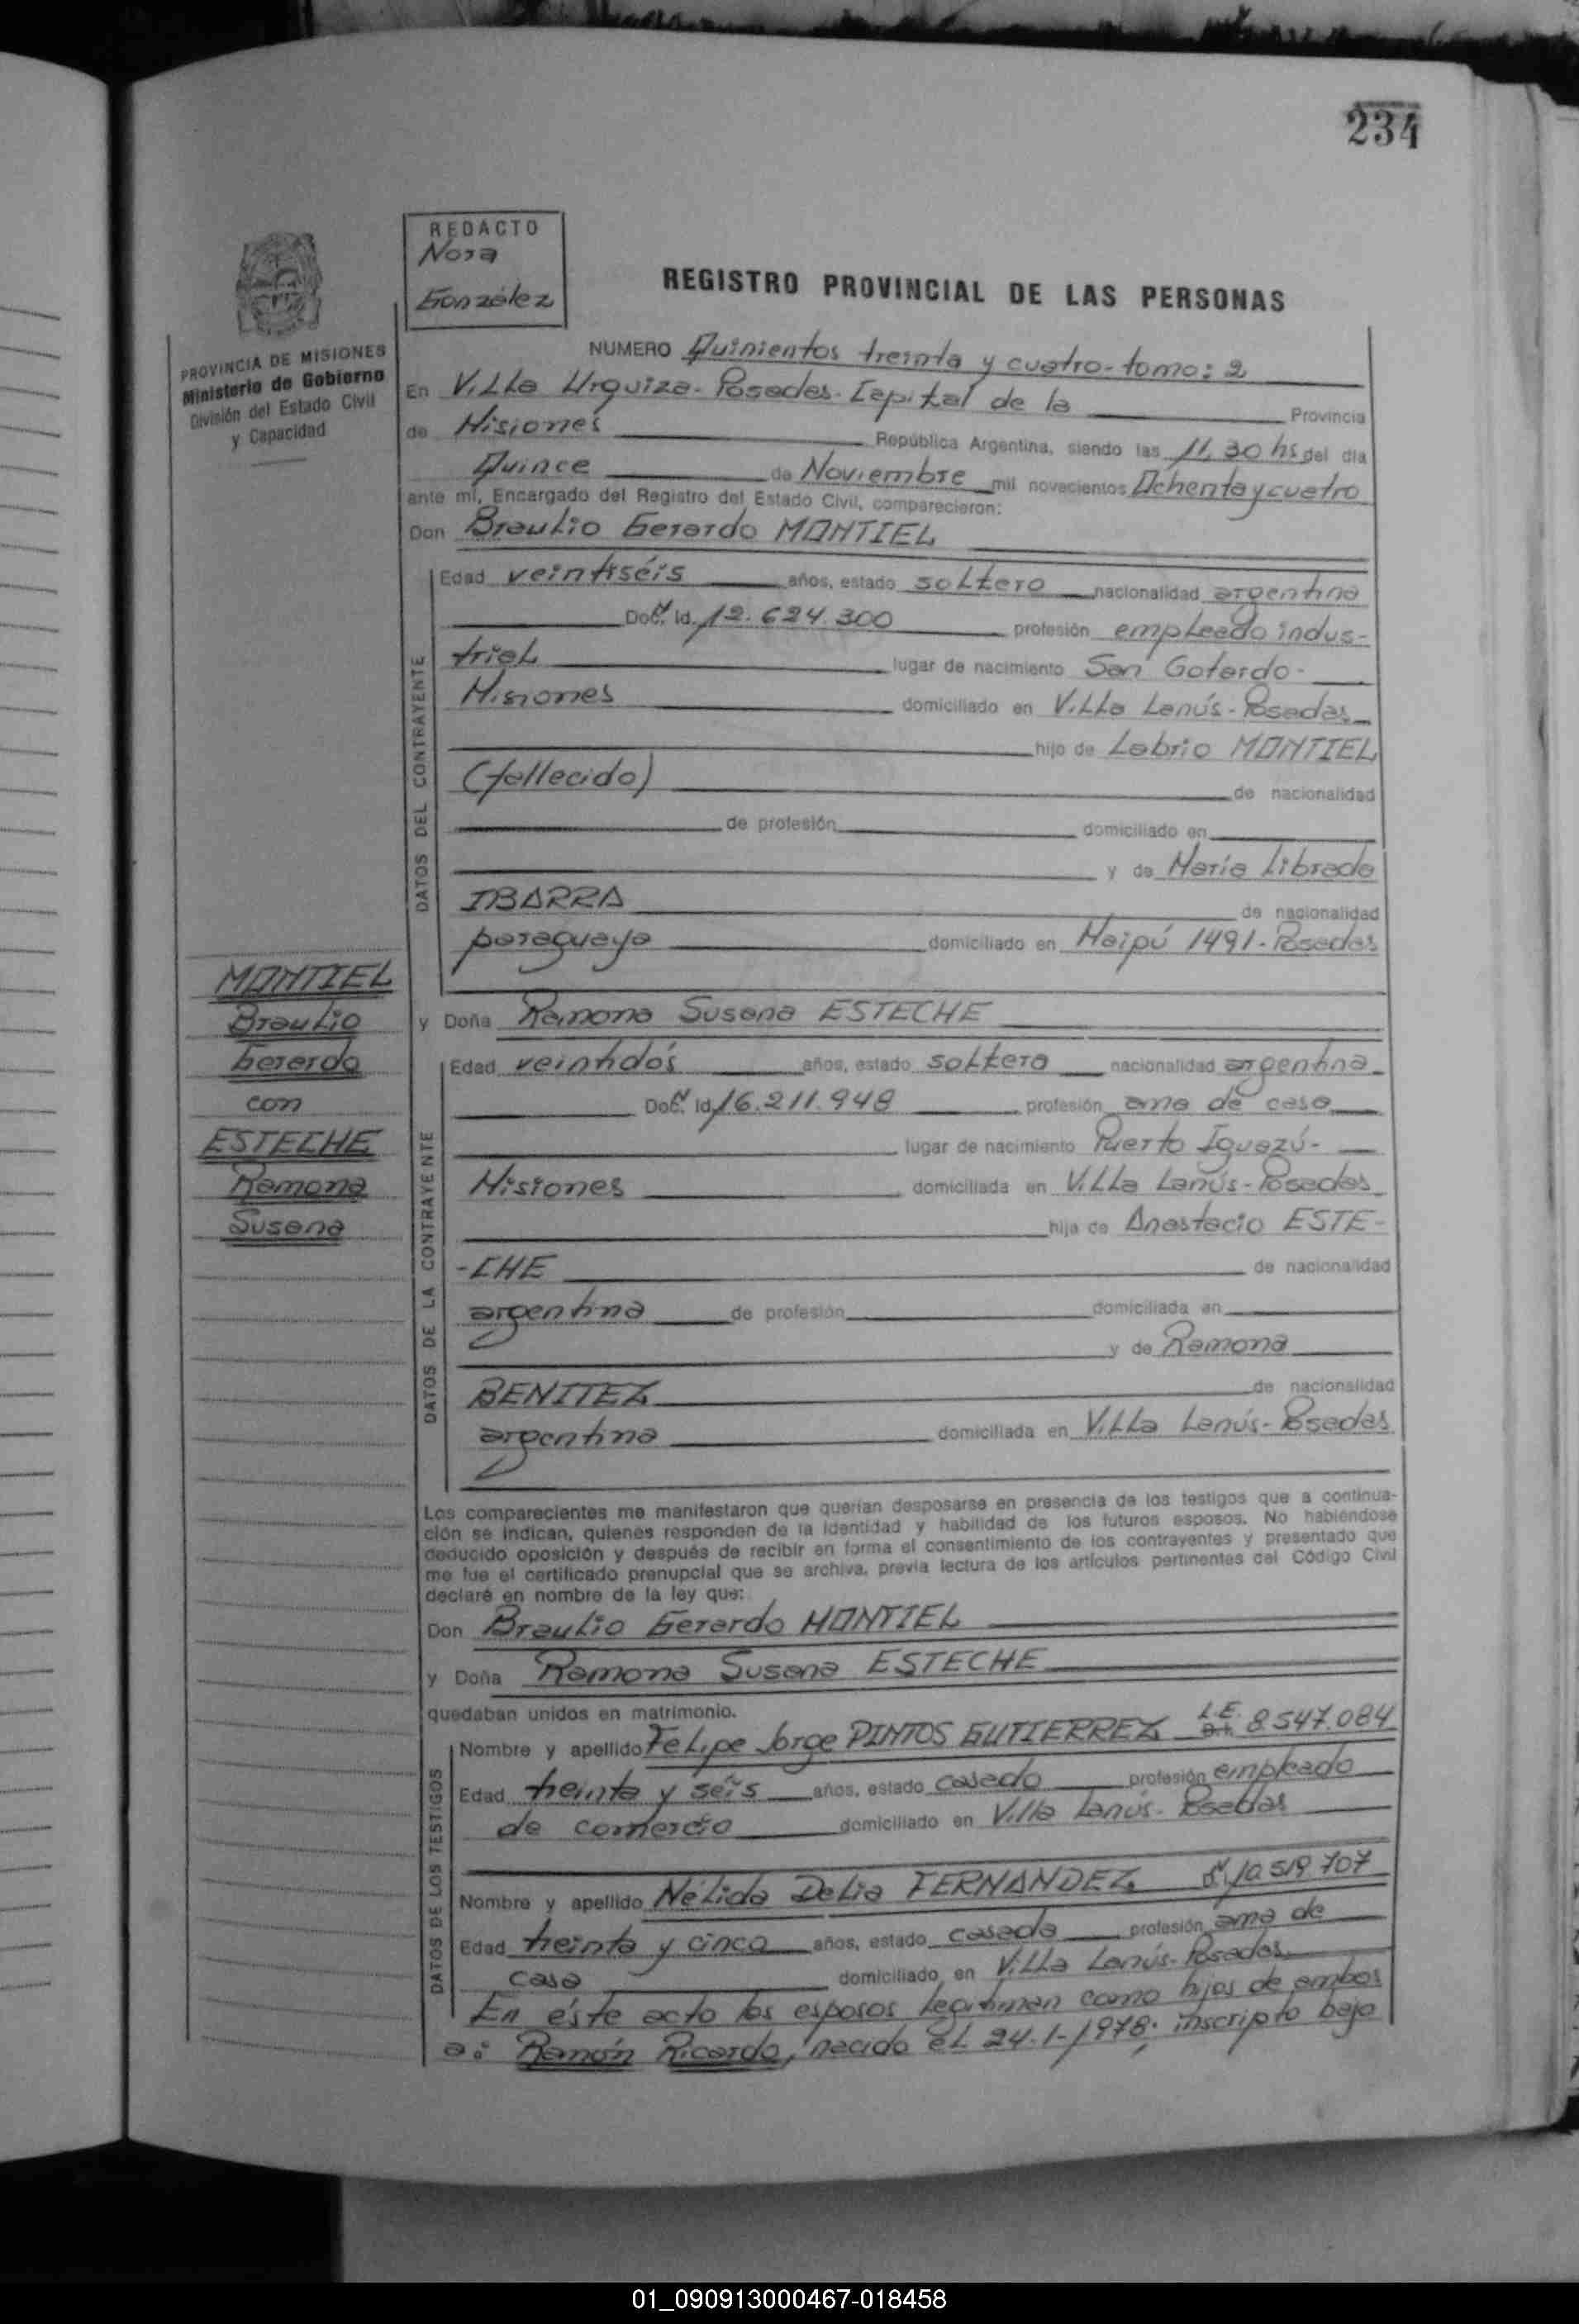 234
REDACTO
Nora
González
REGISTRO PROVINCIAL DE LAS PERSONAS
PROVINCIA DE MISIONES
Ministerio de Gobierno
División del Estado Civil
y Capacidad
NUMERO Quinientos treinta y cuatro-tomo: 2
En Villa Urquiza-Posadas-Capital de la Provincia
de Misiones República Argentina, siendo las 11,30 hs del día
Quince de Noviembre mil novecientos Ochenta y cuatro
ante mí, Encargado del Registro del Estado Civil, comparecieron:
Don Braulio Gerardo MONTIEL
DATOS DEL CONTRAYENTE
Edad veintiséis años, estado soltero nacionalidad argentina
Doc. Id. 12.624.300 profesión empleado indus-
trial lugar de nacimiento San Gotardo-
Misiones domiciliado en Villa Lanús-Posadas
hijo de Labrio MONTIEL
(fallecido) de nacionalidad
de profesión domiciliado en
y de María Librada
IBARRA de nacionalidad
paraguaya domiciliado en Maipú 1491-Posadas
MONTIEL
Braulio
Gerardo
con
ESTECHE
Ramona
Susana
y Doña Ramona Susana ESTECHE
DATOS DE LA CONTRAYENTE
Edad veintidós años, estado soltera nacionalidad argentina
Doc. Id. 16.211.948 profesión ama de casa
lugar de nacimiento Puerto Iguazú-
Misiones domiciliada en Villa Lanús-Posadas
hija de Anastacio ESTE-
-CHE de nacionalidad
argentina de profesión domiciliada en
y de Ramona
BENITEZ de nacionalidad
argentina domiciliada en Villa Lanús-Posadas
Los comparecientes me manifestaron que querían desposarse en presencia de los testigos que a continua-
ción se indican, quienes responden de la identidad y habilidad de los futuros esposos. No habiéndose
deducido oposición y después de recibir en forma el consentimiento de los contrayentes y presentado que
me fue el certificado prenupcial que se archiva, previa lectura de los artículos pertinentes del Código Civil
declaré en nombre de la ley que:
Don Braulio Gerardo MONTIEL
y Doña Ramona Susana ESTECHE
quedaban unidos en matrimonio.
DATOS DE LOS TESTIGOS
Nombre y apellido Felipe Jorge PINTOS GUTIERREZ L.E. 8.547.084
Edad treinta y seis años, estado casado profesión empleado
de comercio domiciliado en Villa Lanús-Posadas
Nombre y apellido Nélida Delia FERNANDEZ 10.519.707
Edad treinta y cinco años, estado casada profesión ama de
casa domiciliado en Villa Lanús-Posadas
En éste acto los esposos legitiman como hijos de ambos
a: Ramón Ricardo, nacido el 24-1-1978; inscripto bajo
01_090913000467-018458